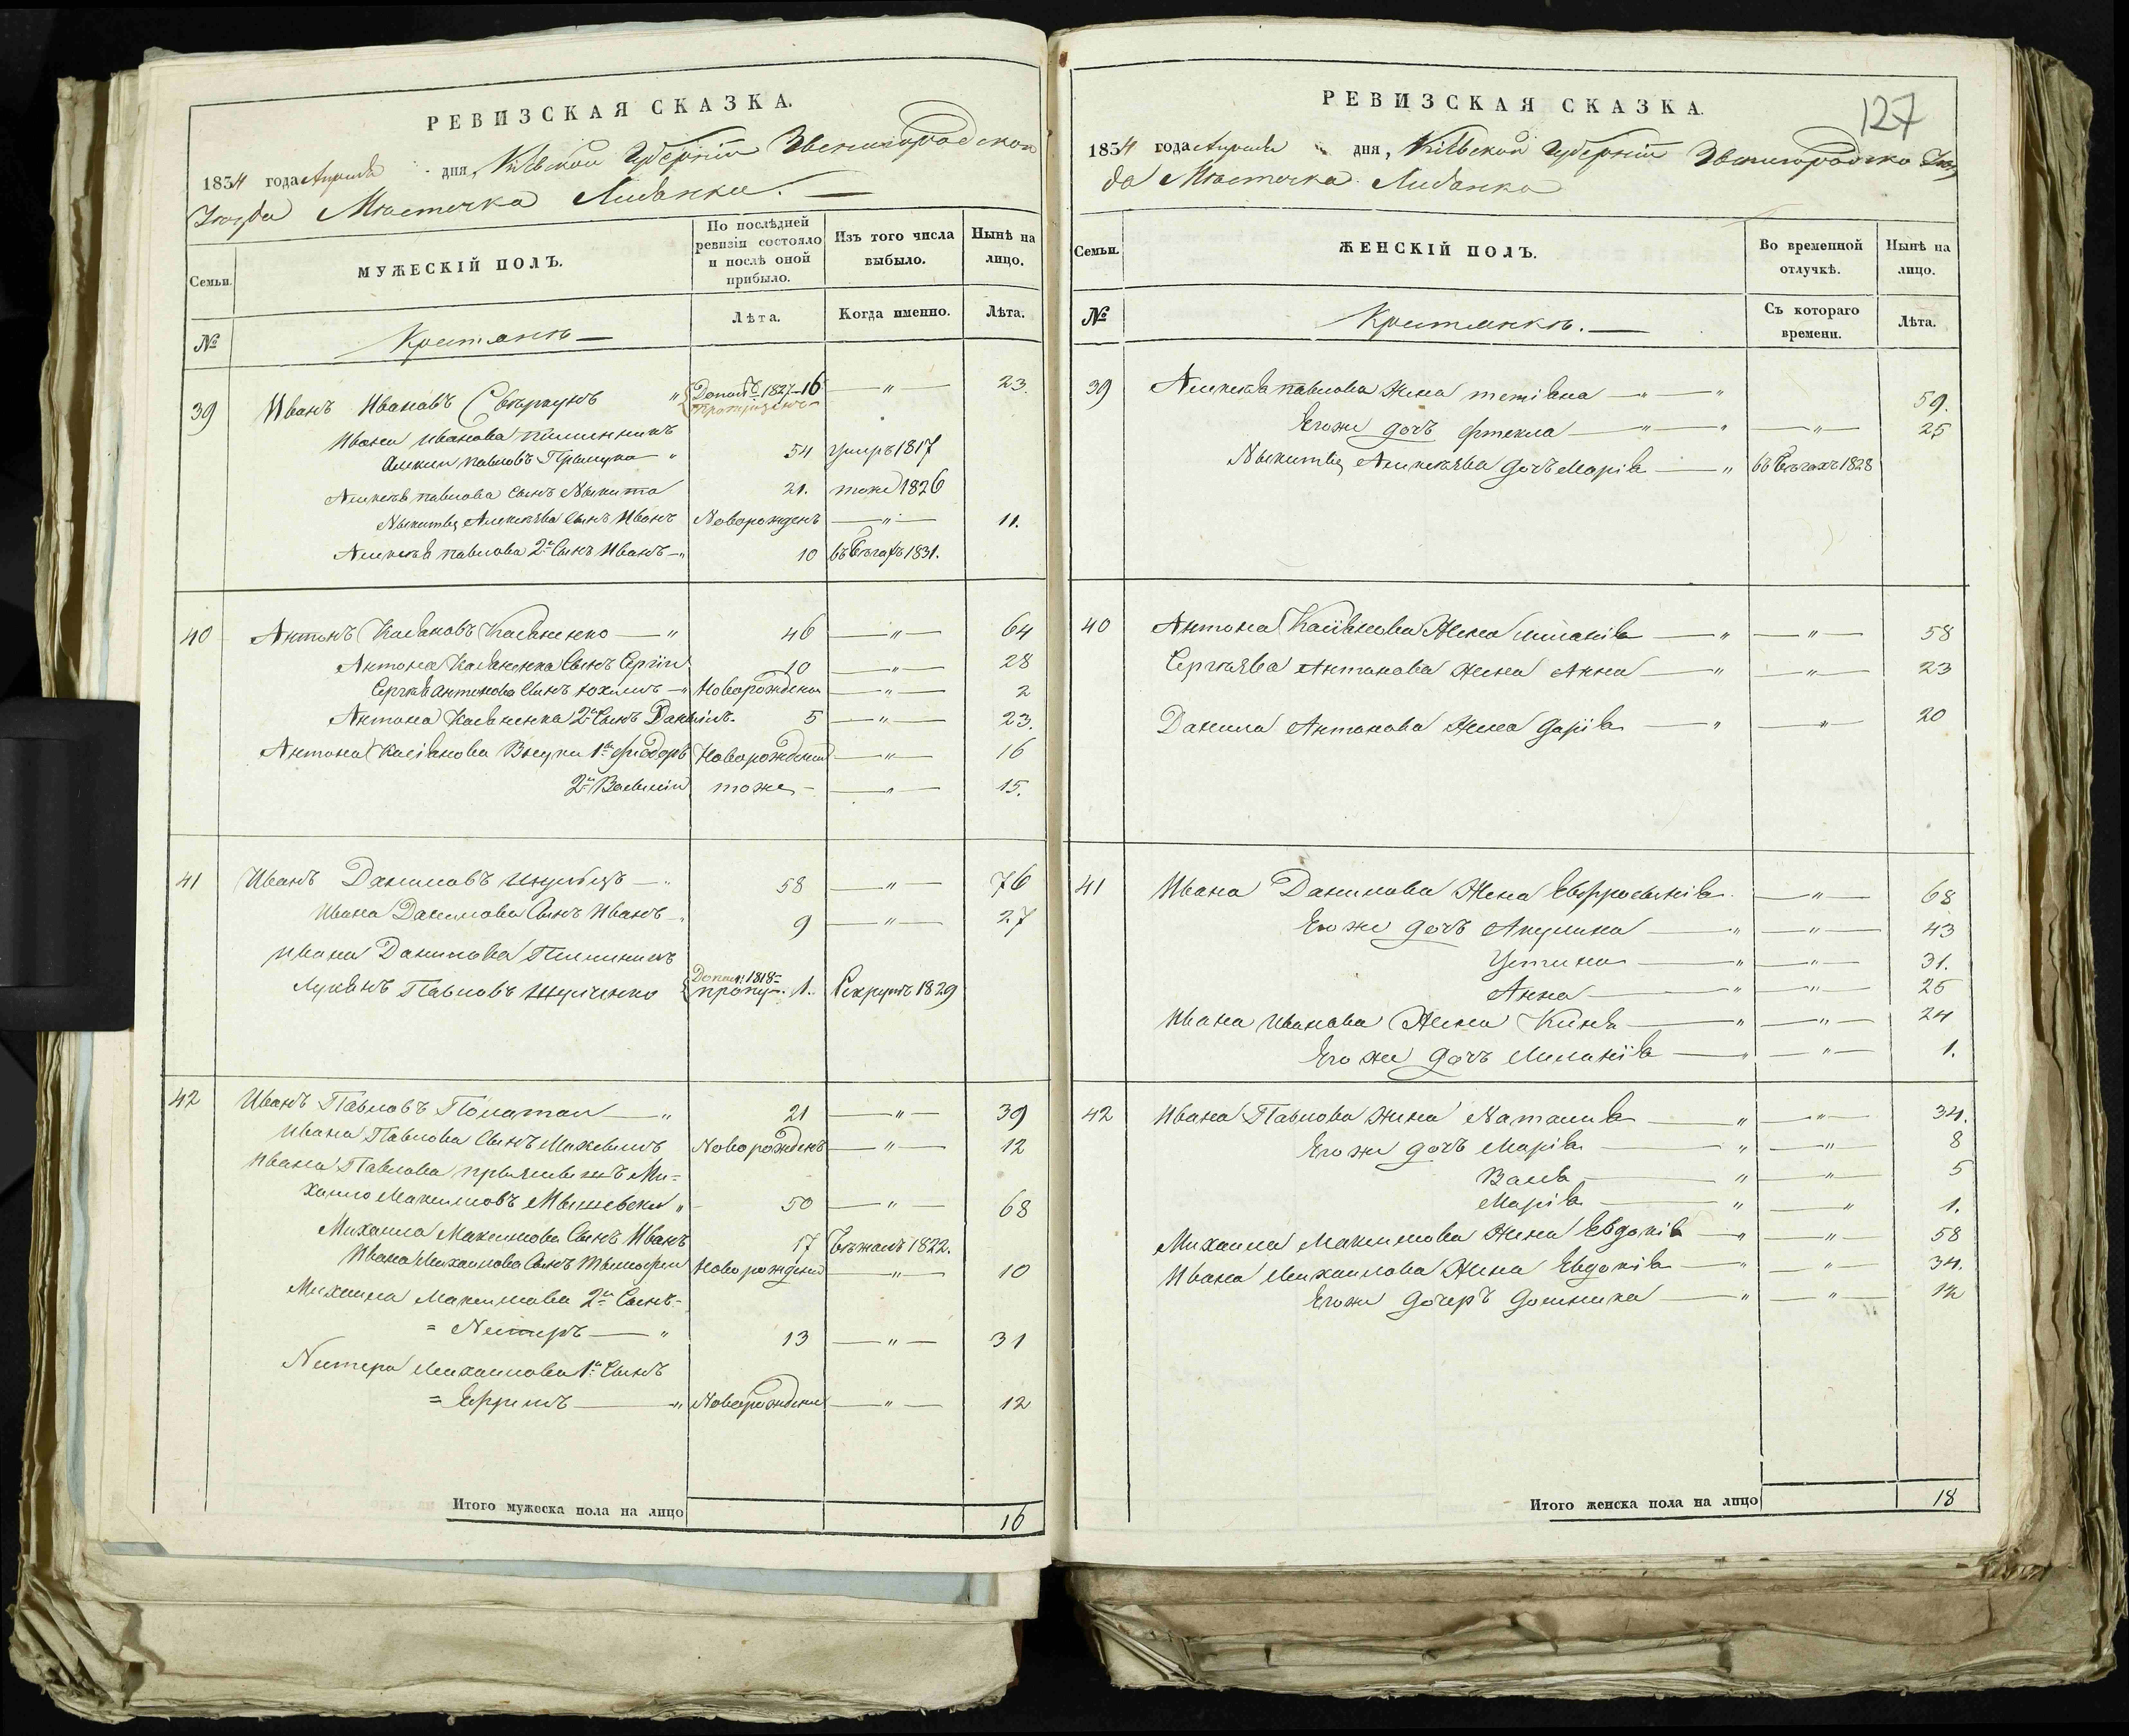 РЕВИЗСКАЯ СКАЗКА.
1834 года Апреля дня, Кіевской Губерніи Звенигородскаго
Уезда Мѣстечка Лисянки.
Семьи.
МУЖЕСКІЙ ПОЛЪ.
По послѣдней ревизіи состояло и послѣ оной прибыло.
Изъ того числа выбыло.
Нынѣ на лицо.
№
Крестянъ
Лѣта.
Когда именно.
Лѣта.
39 Иванъ Ивановъ 1827 16 — " — 23
Ивана Иванова племенникъ
Алексѣи Павловъ 54 умеръ 1817
Алексѣя Павлова Сынъ Никита 21. тоже 1826
Никиты Алексѣева Сынъ Иванъ Новорожденъ — " — 11.
Алексѣя Павлова 2й Сынъ Иванъ 10 въ бѣгахъ 1831.
40 Антонъ Касяновъ Касяненко — " 46 — " — 64
Антона Касяненка Сынъ Сергіи 10 — " — 28
Сергѣя Антонова Сынъ Юхимъ — " Новорожденъ — " — 2
Антона Касяненка 2й Сынъ Данилъ. 5 — " — 23.
Антона Касіянова Внуки 1й Фіодоръ Новорожденъ — " — 16
2й Василіи тоже — " — 15.
41 Иванъ Даниловъ — " 58 — " — 76
Ивана Данилова Сынъ Иванъ 9 — " — 27
Ивана Данилова Племенникъ
Лукянъ Павловъ 1818 1. Рекрутъ 1829
42 Иванъ Павловъ — " 21 — " — 39
Ивана Павлова Сынъ Новорожденъ — " — 12
Ивана Павлова Ми=
хаило Максимовъ " 50 — " — 68
Михаила Максимова Сынъ Иванъ 17 Бежалъ 1822.
Ивана Михаилова Сынъ Тимофеи Новорожденъ — " — 10
Михаила Максимова 2й Сынъ=
= Нестеръ — " 13 — " — 31
Нестера Михаилова 1й Сынъ
= Ефримъ — " Новорожденъ — " — 12
Итого мужеска пола на лицо 16
127
РЕВИЗСКАЯ СКАЗКА.
1834 года Апреля дня, Кіевской Губерніи Звенигородско Уез
да Мѣстечка Лисянка
Семьи.
ЖЕНСКІЙ ПОЛЪ.
Во временной отлучкѣ.
Нынѣ на лицо.
№
Крестянкъ. —
Съ котораго времени.
Лѣта.
39 Алексѣя Павлова Жена тетіяна — " — " 59.
Егоже дочъ Фтекла — " — " — " — 25
Никиты Алексѣева дочъ Марія — " въ бѣгахъ 1828
40 Антона Касіянова Жена — " — " — 58
Сергѣява Антонова Жена Анна — " — " — 23
Данила Антонова Жена Дарія — " — " 20
41 Ивана Данилова Жена Евфросинія — " — 68
Егоже дочъ Акулина — " — " — 43
Устина — " — " — 31.
Анна — " — " — 25
Ивана Иванова Жена — " — " — 24
Егоже дочъ Меланія — " — " — 1.
42 Ивана Павлова Жена Наталия — " — " — 34.
Егоже дочъ Марія — " — " — 8
— " — " — 5
Марія — " — " 1.
Михаила Максимова Жена Евдокія — " — " — 58
Ивана Михаилова Жена Евдокія — " — " — 34.
Егоже дочеръ Домникя — " — " —
Итого женска пола на лицо 18